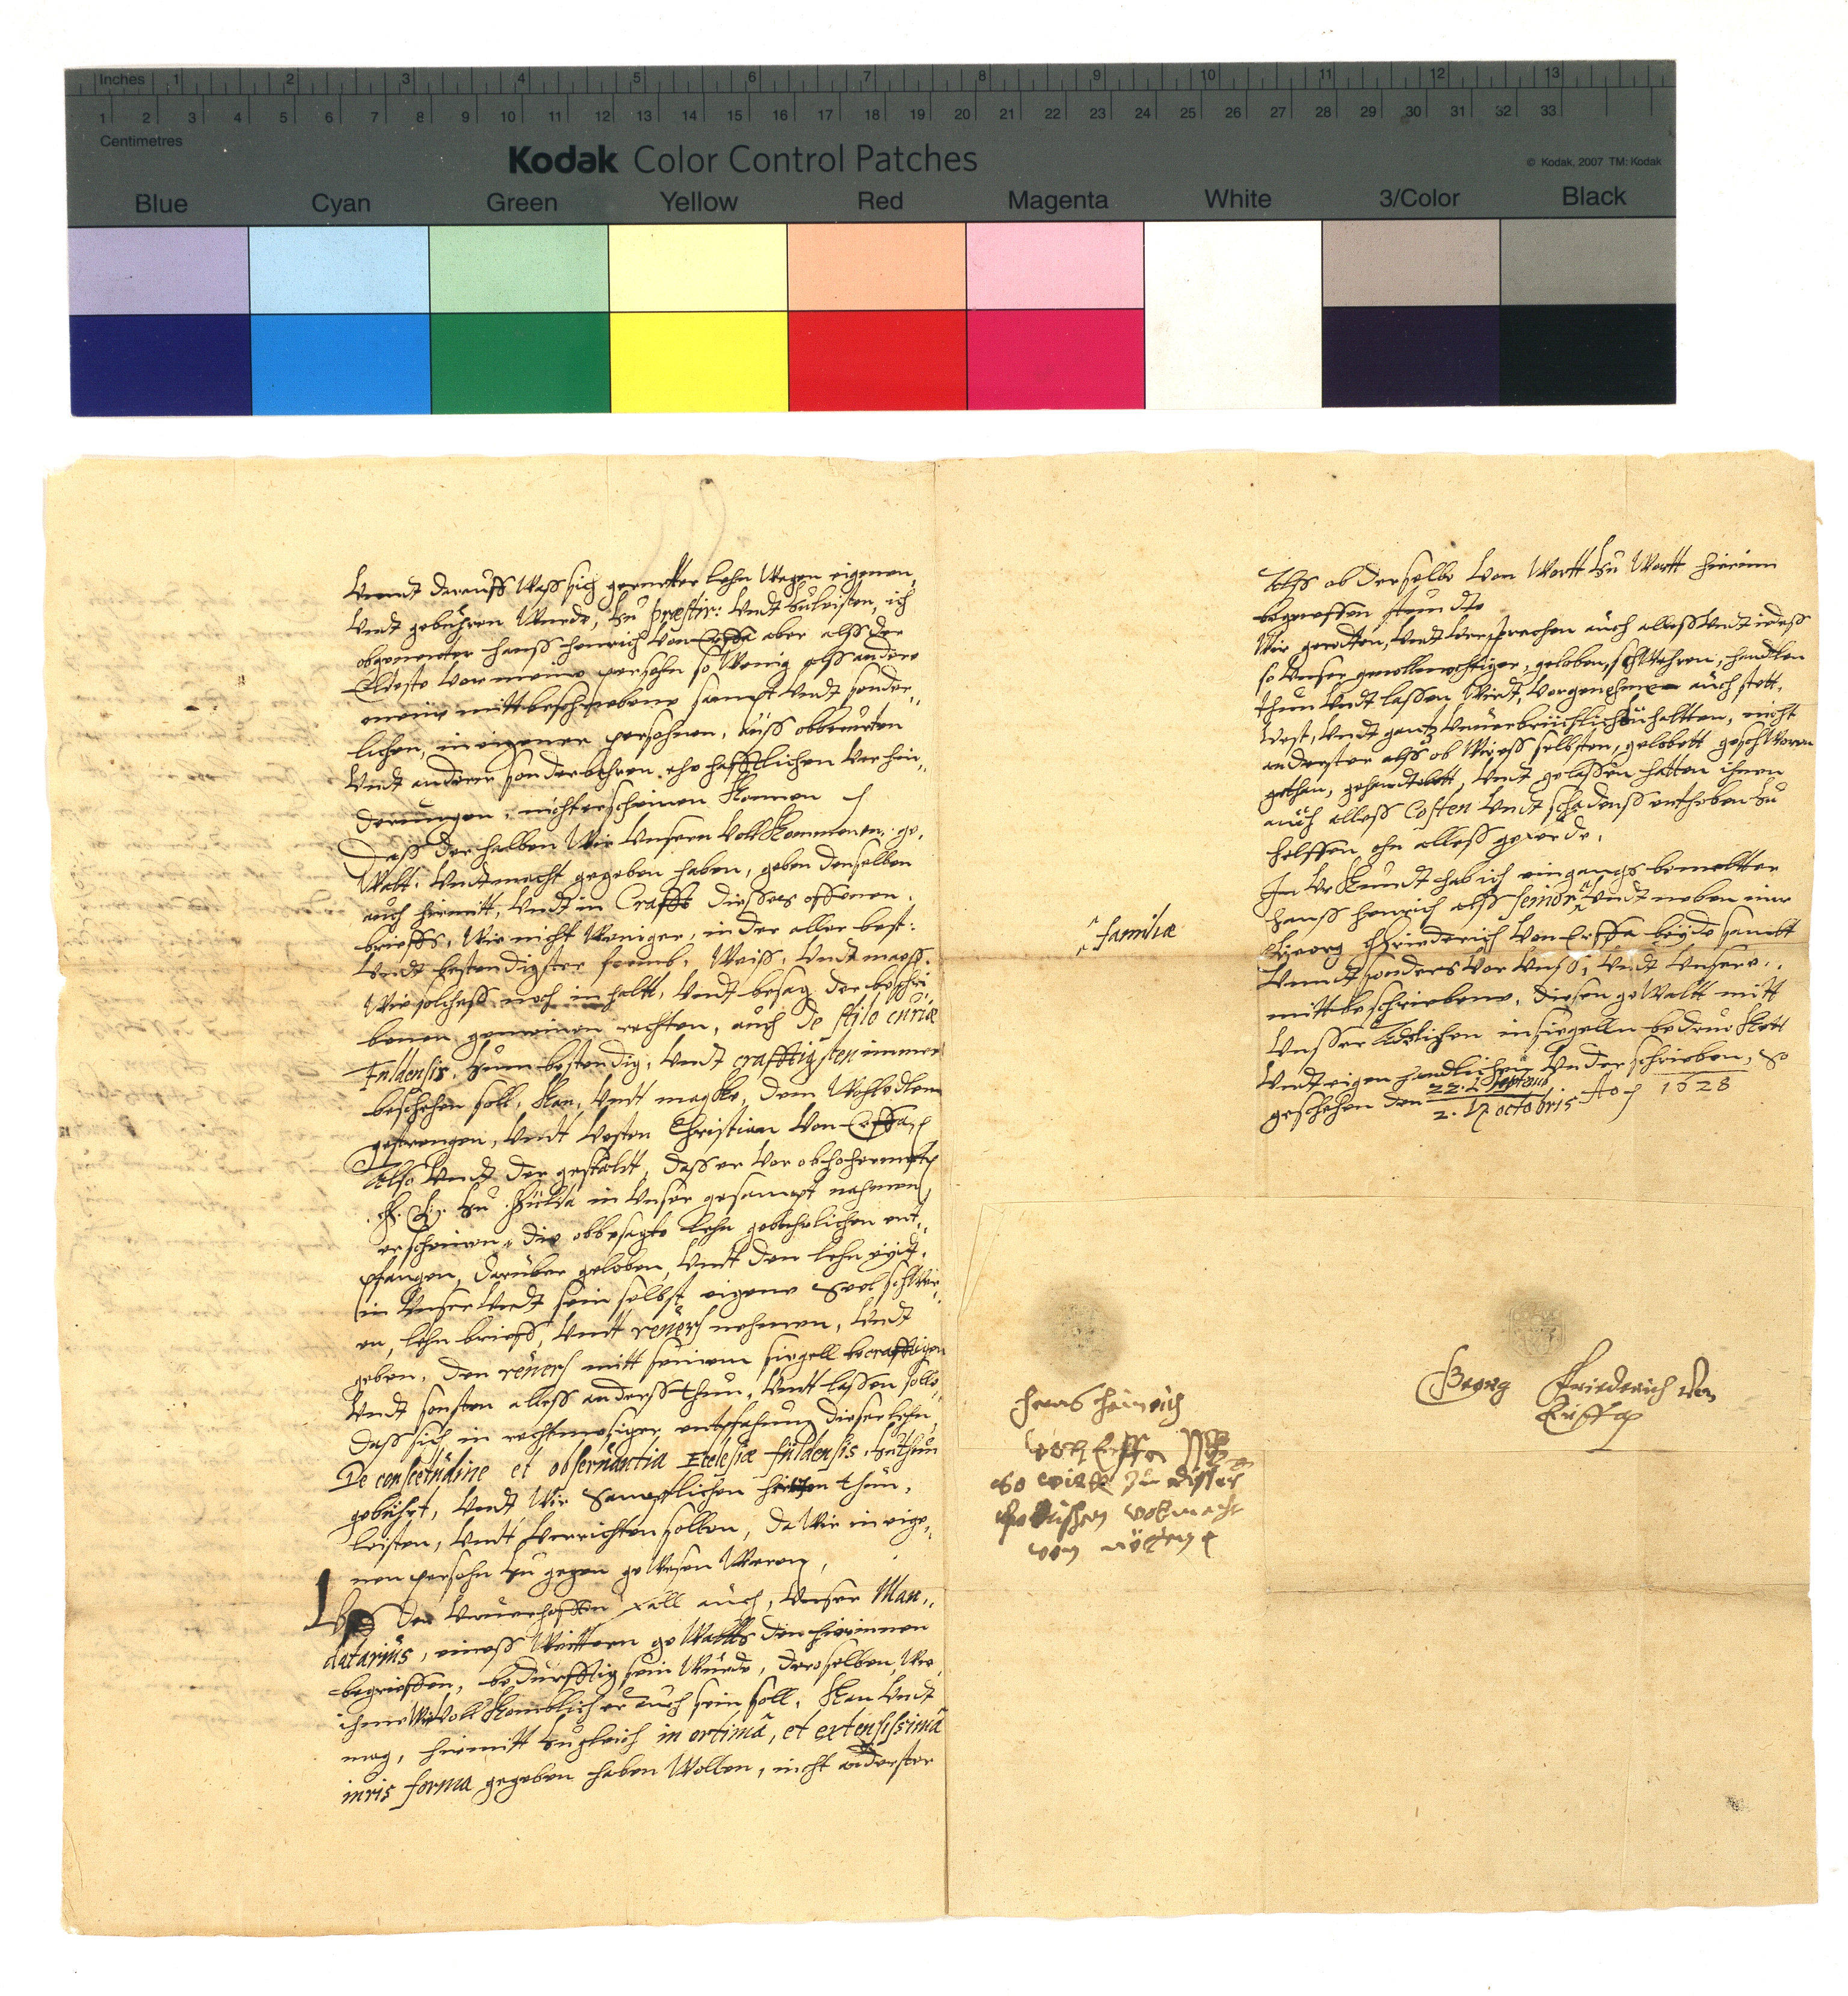 Inches 1 2 3 4 5 6 7 8 9 10 11 12 13
1 2 3 4 5 6 7 8 9 10 11 12 13 14 15 16 17 18 19 20 21 22 23 24 25 26 27 28 29 30 31 32 33
Centimetres
Kodak Color Control Patches
© Kodak, 2007 TM: Kodak
Blue Cyan Green Yellow Red Magenta White 3/Color Black
Vnndt darauff Wass sich gemelter lehn Wegen eigenen,
Vndt gebühren Wurde, zu præstir: Vndt zuleisten, ich
obgenenter Hanss Henrich Von Erffa aber alss der
Elteste Vor meine persohn so Wenig alss andere
meine mittbeschriebene sampt Vndt sonder„
lichen, in eigener persohnen, auss obberürten
Vndt anderer sonderbahren ehehafftlichen Verhin„
derungen, nicht erscheinen Können
Dass derhalben Wir Vnsern Vollkommenen ge„
Walt, Vndt macht gegeben haben, geben denselben
auch hiermitt, Vndt in Crafft diesses offenen
brieffs, Wie nicht Weniger, in der aller best:
Vndt bestendigster formb, Weiss, Vndt mass,
Wie solchess nach inhaltt, Vndt besag der beschri„
benen gemeinen rechten, auch de stylo curiæ
Fuldensis, zum bestendig, Vndt crafftigsten immer
beschehen soll, Kan, Vndt magke, dem Wohledlen
gestrengen, Vndt Vesten Christian Von Erffa
Also Vndt der gestaldt, dass er Vor obhochermelt
F. G. zu Fulda in Vnser gesampt nahmen
erscheinen, die obbesagte lehn gebührlichen ent„
pfangen, darüber geloben, Vndt den lehn eydt,
in Vnser Vndt sein selbst eigene Seel schWer„
en, lehn brieff, Vndt reuers nehmen, Vndt
geben, den reuers mitt seinem siegell becrafftigen
Vndt sonsten alless anderss thun, Vndt lassen solle,
dass sich in rechtmesiger entpfahung dieser lehn,
De consuetudine et obseruantia Ecclesiæ fuldensis, zuthun
gebührt, Vndt Wir Samptlichen hetten thun,
leisten, Vndt Verrichten sollen, da Wir in eige„
nen persohn zu gegen geWesen Weren,
den Vnuerhofften fall auch, Vnser Man„
datarius, einess Weittern geWallts den hierinnen
begrieffen, bedürfftig sein Würde, denselben, Wie
ihme Vollkömblicher auch sein soll, Kan Vndt
mag, hiermitt zugleich in optimâ, et extensissimâ
iuris forma gegeben haben Wollen, nicht anderster
Alss ob derselbe Von Wortt zu Wortt hierinn
begrieffen stundte
Wir geredten, Vndt Versprechen auch alless Vndt iedess
so Vnser geuollmechtiger, geloben, schWehren, handlen
thun Vndt lassen Wirdt, Vorgenehm auch stett,
Vest, Vndt gantz Vnuerbrüchlich zuhaltten, nicht
anderster alss ob Wir ess selbsten, gelobett geschWoren
gethan, gehandtelett, Vndt gelassen hatten ihnen
auch alless Costen Vndt schadenss entheben zu
helffen ohn alless geuerde.
In Vrkundt hab ich eingangs bemeltter
Hanss Henrich alss Senior Vndt neben mir
Georg Friederich Von Erffa beyde sambt
Vnndt sonders Vor Vnss, Vndt Vnsere„
mittbeschriebene, diesen geWaltt mitt
Vnsser Adelichen insiegelln bedruckett
Vndt eigen handlichen Vnderschrieben, So
geschehen den 22. Septemb
2. octobris Ao 1628
familiæ
Hans Heinrich
von Erffa
Georg Friederich von
Erffa